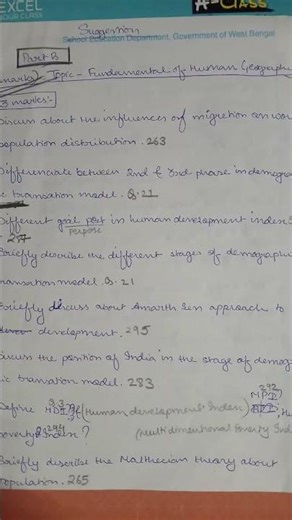 EXCEL
YOUR CLASS
A-CLASS
Suggestion
School Education Department, Government of West Bengal
Part B
marks Topic - Fundamental of Human Geography
3 marks:-
Discuss about the influences of migration on world
population distribution. 263
Differenciate between 2nd & 3rd phase in demogra
transation model. Q.21
Different goal post in human development index
purpose
257
Briefly describe the different stages of demographic
transation model. Q.21
Briefly discuss about Amarth Sen approach to
development. 295
Discuss the position of India in the stage of demog
ic transation model. 283
292
MPI
Define HDI (Human development Index)
poverty Index? 294 (Multidimentional Poverty Ind
Briefly describe the Malthecian theory about
population. 265